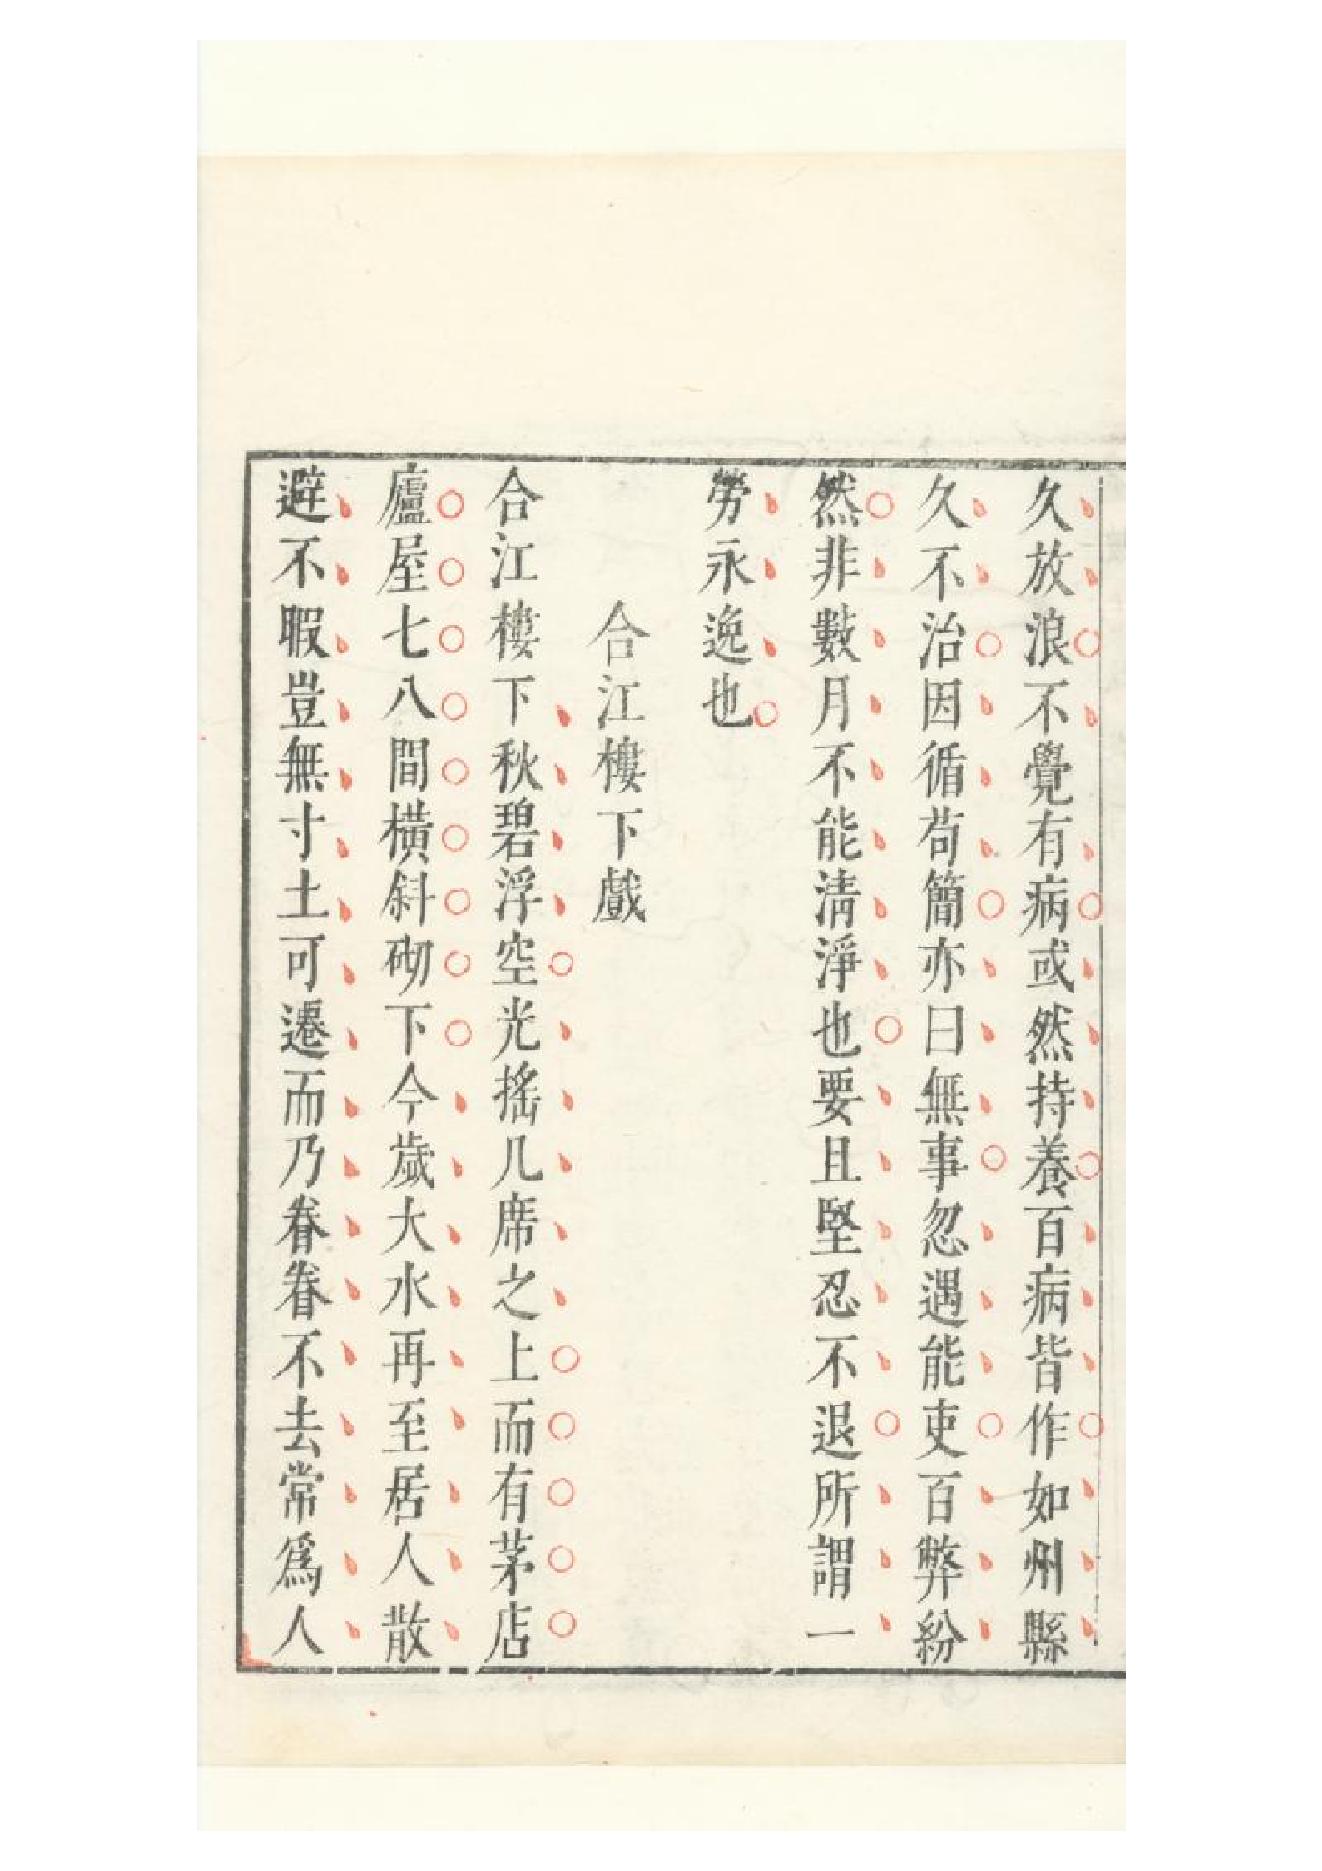 久放浪不覺有病或然持養百病皆作如州縣
久不治因循苟簡亦曰無事忽遇能吏百弊紛
然非數月不能清淨也要且堅忍不退所謂一
勞永逸也
合江樓下戲
合江樓下秋碧浮空光搖几席之上而有茅店
廬屋七八間橫斜砌下今歲大水再至居人散
避不暇豈無寸土可遷而乃眷眷不去常爲人